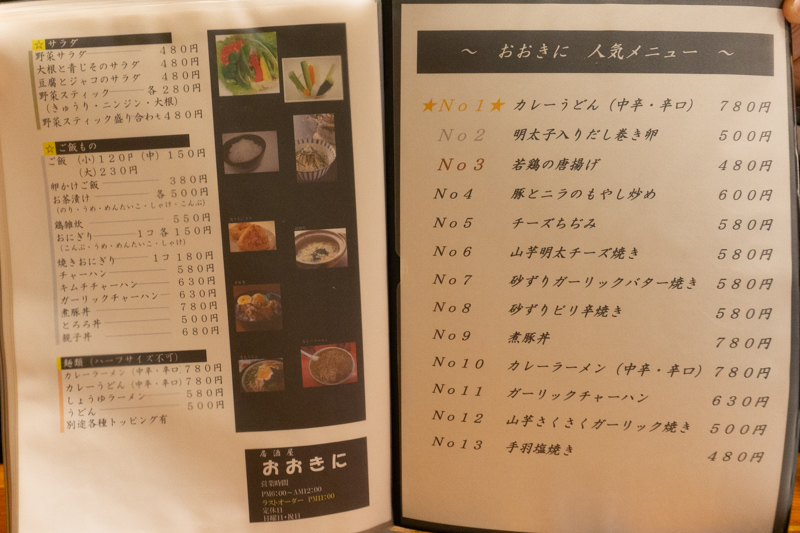 ☆サラダ
野菜サラダ 480円
大根と青じそのサラダ 480円
豆腐とジャコのサラダ 480円
野菜スティック 各280円
(きゅうり・ニンジン・大根)
野菜スティック盛り合わせ480円
☆ご飯もの
ご飯 (小)120円 (中)150円
(大)230円
卵かけご飯 380円
お茶漬け 各500円
(のり・うめ・めんたいこ・しゃけ・こんぶ)
鶏雑炊 550円
おにぎり 1コ 各150円
(こんぶ・うめ・めんたいこ・しゃけ)
焼きおにぎり 1コ 180円
チャーハン 580円
キムチチャーハン 630円
ガーリックチャーハン 630円
煮豚丼 780円
とろろ丼 500円
親子丼 680円
麺類 (ハーフサイズ不可)
カレーラーメン (中辛・辛口) 780円
カレーうどん (中辛・辛口) 780円
しょうゆラーメン 580円
うどん 500円
別途各種トッピング有
居酒屋
おおきに
営業時間
PM6:00~AM12:00
ラストオーダー PM11:00
定休日
日曜日・祝日
~ おおきに 人気メニュー ~
★No1★ カレーうどん (中辛・辛口) 780円
No2 明太子入りだし巻き卵 500円
No3 若鶏の唐揚げ 480円
No4 豚とニラのもやし炒め 600円
No5 チーズちぢみ 580円
No6 山芋明太チーズ焼き 580円
No7 砂ずりガーリックバター焼き 580円
No8 砂ずりピリ辛焼き 580円
No9 煮豚丼 780円
No10 カレーラーメン (中辛・辛口) 780円
No11 ガーリックチャーハン 630円
No12 山芋さくさくガーリック焼き 500円
No13 手羽塩焼き 480円